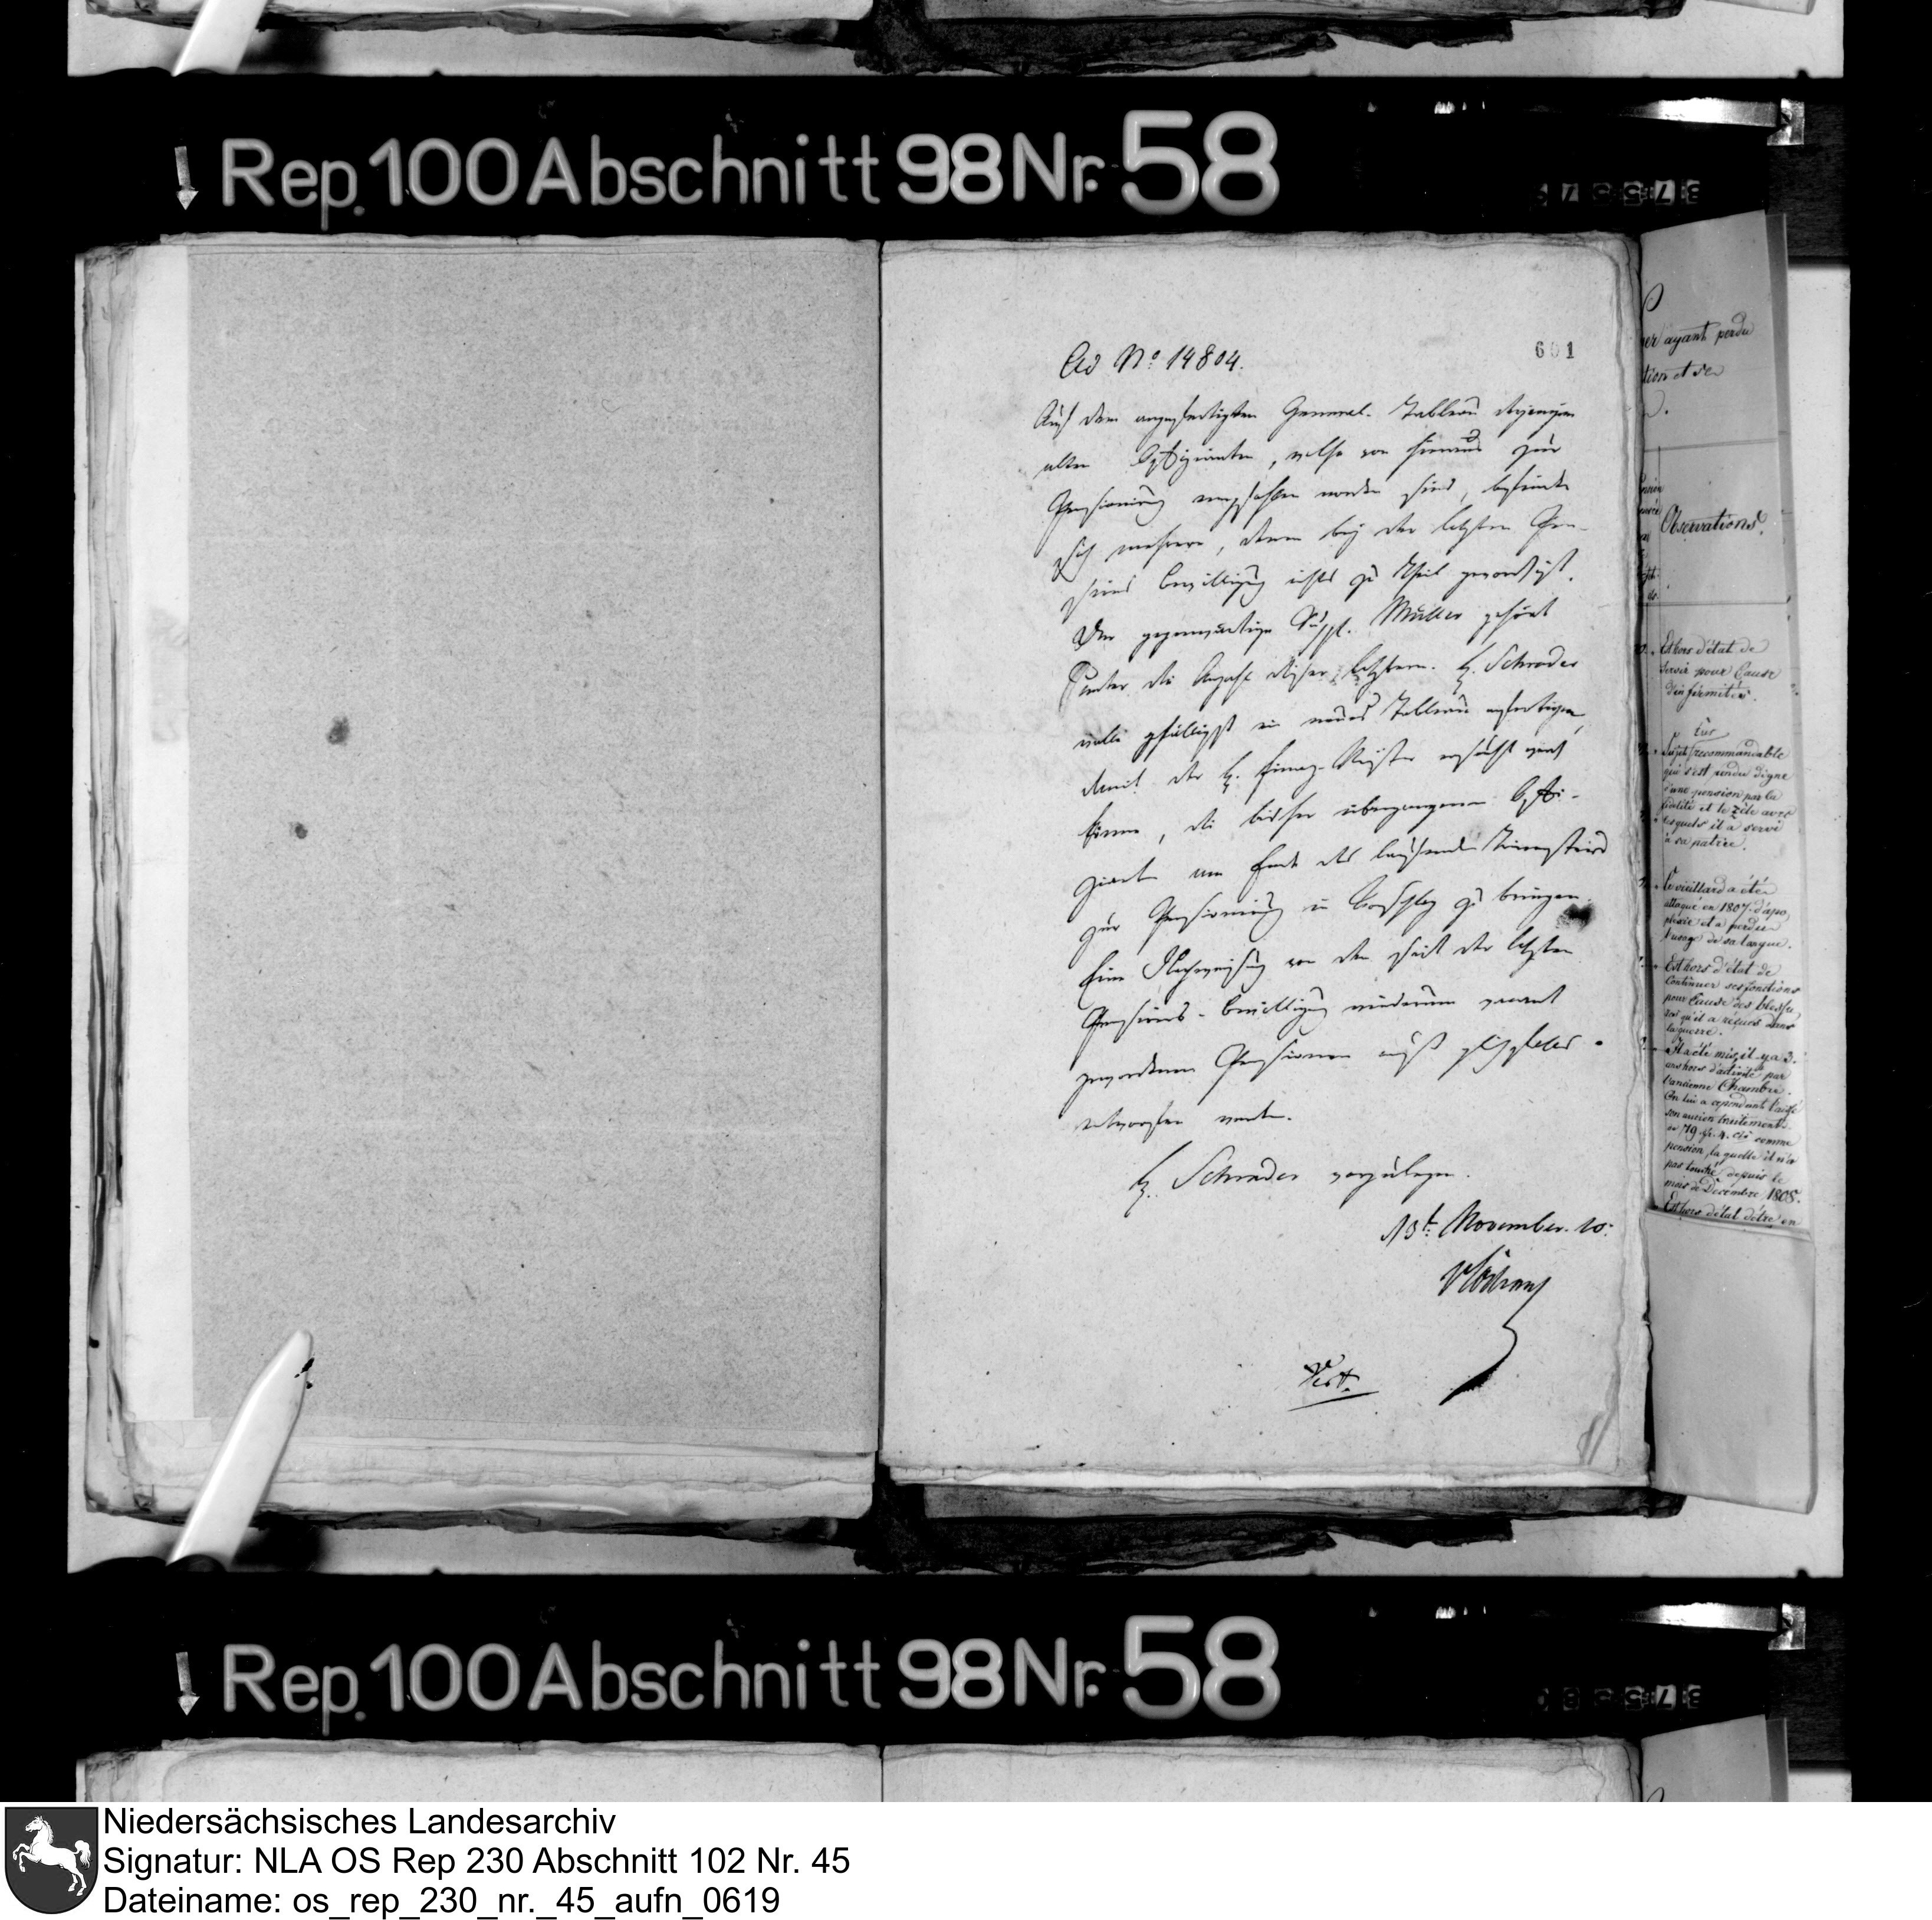 Rep. 100 Abschnitt 98 Nr. 58
Ad No. 14804.
601
Auf dem angefertigten General-Tableau derjenigen
alten Offizianten, welche von hieraus zur
Pensionirung empfohlen worden sind, befinden
sich mehrere, denen bey der letzten Pen-
sions Bewilligung nichts zu Theil geworden ist.
Der gegenwärtige Suppl. Müller gehört
unter die Anzahl dieser letztern. H. Schrader
wolle gefälligst ein neues Tableau anfertigen,
damit der H. Finanz-Minister ersucht werden
könne, die bisher übergangenen Offi-
zianten am Ende des laufenden Trimesters
zur Pensionirung in Vorschlag zu bringen.
Eine Nachweisung von den seit der letzten
Pensions-Bewilligung wiederum vacant
gewordenen Pensionen muß gleichfalls
entworfen werden.
H. Schrader vorzulegen.
13t November 10.
er ayant perdu
tion et de
Observations.
Est hors d'état de
servir pour Cause
d'infirmités.
Sujet recommandable
qui s'est rendu digne
d'une pension par la
fidélité et le zèle avec
lesquels il a servi
à sa patrie.
Ce vieillard a été
attaqué en 1807 d'apo
plexie et a perdu
l'usage de sa langue.
Est hors d'état de
Continuer ses fonctions
pour Cause des blessu
res qu'il a reçues dans
la guerre.
Il a été mis il y a 3
ans hors d'activité par
l'ancienne Chambre.
On lui a cependant laissé
son ancien traitement
de 79 fr. 4. cs comme
pension, laquelle il n'a
pas touché depuis le
mois de Décembre 1808.
Est hors d'état d'être en
Rep. 100 Abschnitt 98 Nr. 58
Niedersächsisches Landesarchiv
Signatur: NLA OS Rep 230 Abschnitt 102 Nr. 45
Dateiname: os_rep_230_nr._45_aufn_0619